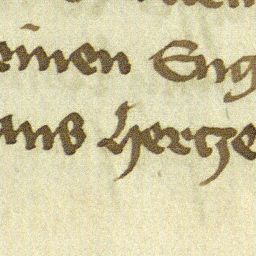 einen Eng
aus hercze